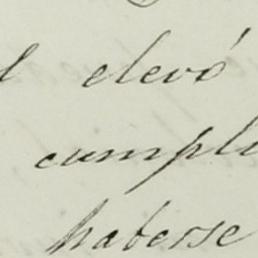 l elevó
cumpli
haberse